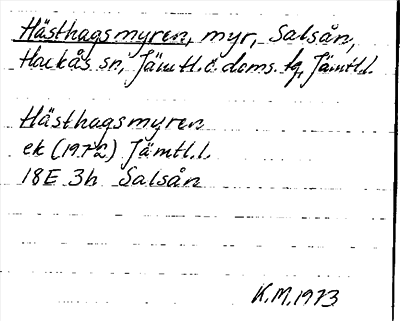 Hästhagsmyren, myr, Salsån,
Hackås sn, Jämtl. ö. doms. tg, Jämtl.l.
Hästhagsmyren
ek (1972) Jämtl.l.
18E 3h Salsån
K.M. 1973